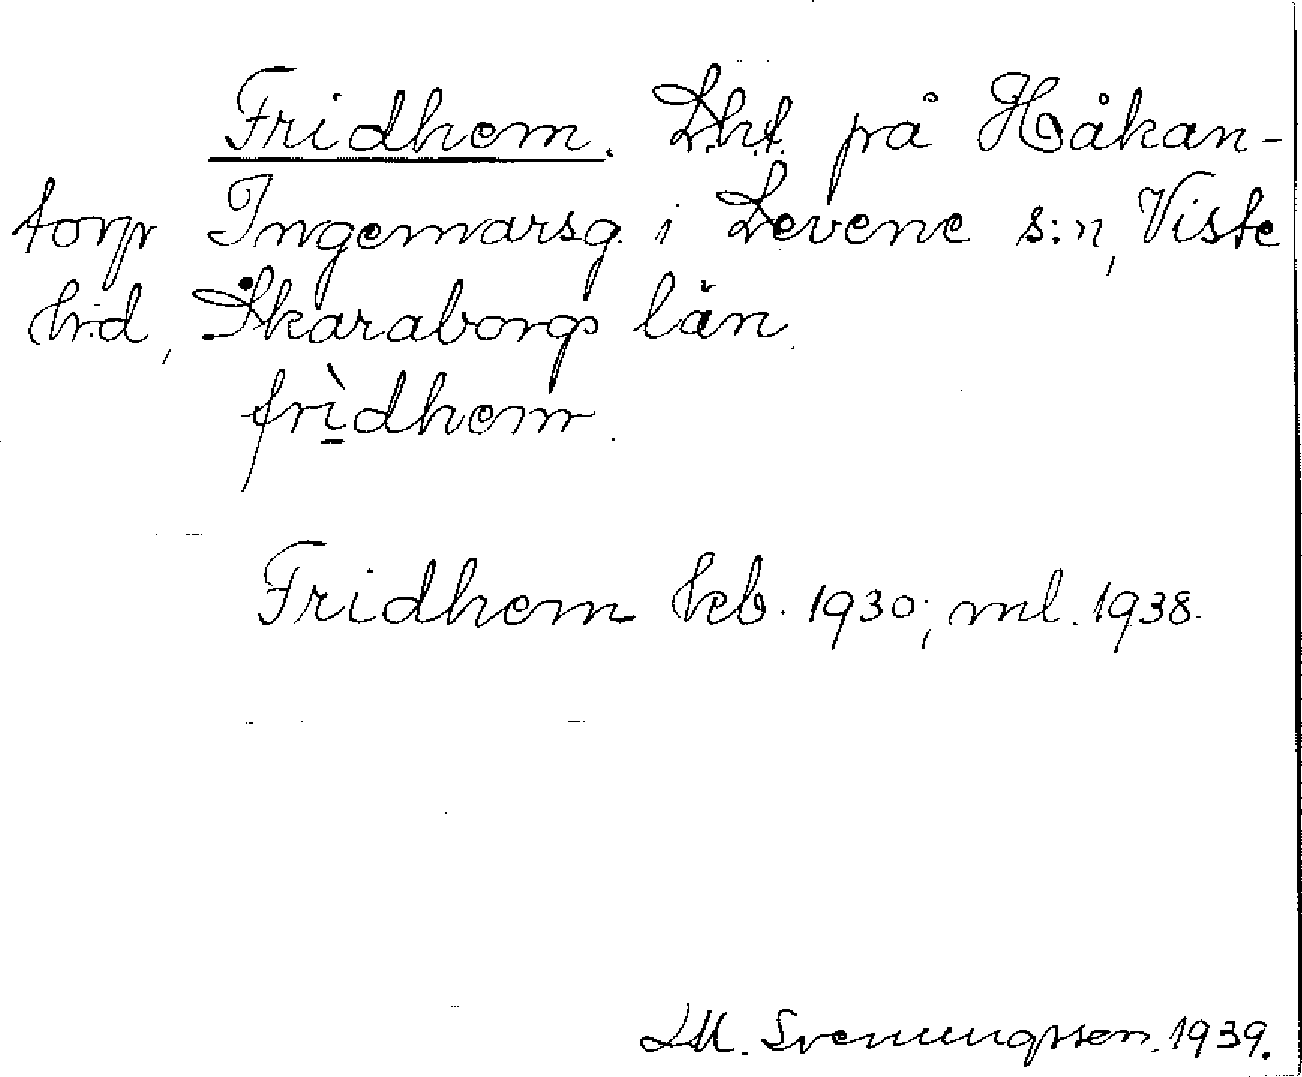 Fridhem. Lht. på Håkan-
torp Ingemarsg. i Levene s:n, Viste
hrd, Skaraborgs län.
frìdhem.
Fridhem kb. 1930; ml. 1938.
LM. Svenungsson. 1939.